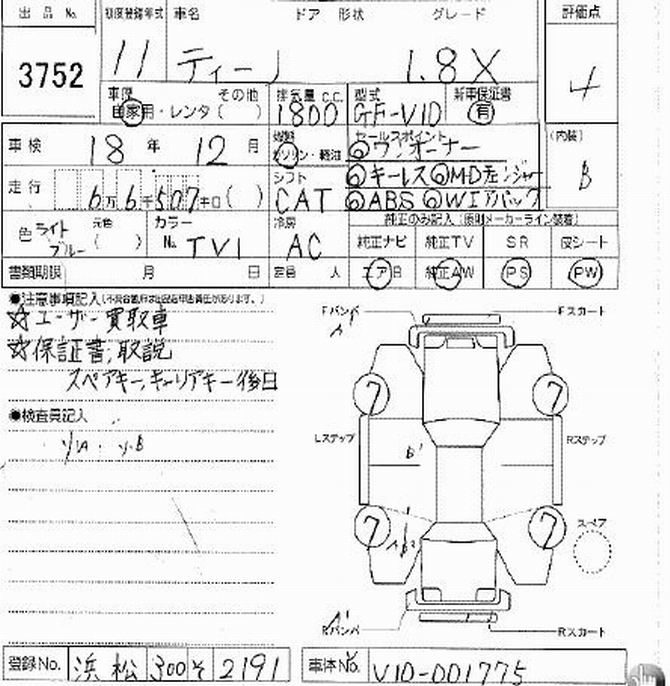 出品 No. 初度登録年式 車名 ドア 形状 グレード 評価点
3752 11 ティーノ 1.8X 4
車歴 その他 排気量 C.C. 型式 新車保証書
自家用・レンタ( ) 1800 GF-V10 有
車検 18 年 12 月 燃料 ガソリン・軽油 セールスポイント (内装)
◎ワンオーナー B
走行 6万6千507キロ( ) シフト CAT ◎キーレス◎MDチェンジャー
◎ABS ◎Wエアバッグ
色 ライトブルー 元色( ) カラーNo. TV1 冷房 AC 純正のみ記入(原則メーカーライン装着)
純正ナビ 純正TV SR 皮シート
書類期限 月 日 定員 人 エアB 純正AW PS PW
●注意事項記入
☆ユーザー買取車
☆保証書,取説
スペアキー,キャリアキー後日
●検査員記入
Fバンパ Fスカート
A'
7 7
Lステップ Rステップ
B'
7 7
スペア
A'
Rバンパ Rスカート
登録No. 浜松 300 そ 2191 車体No. V10-001775